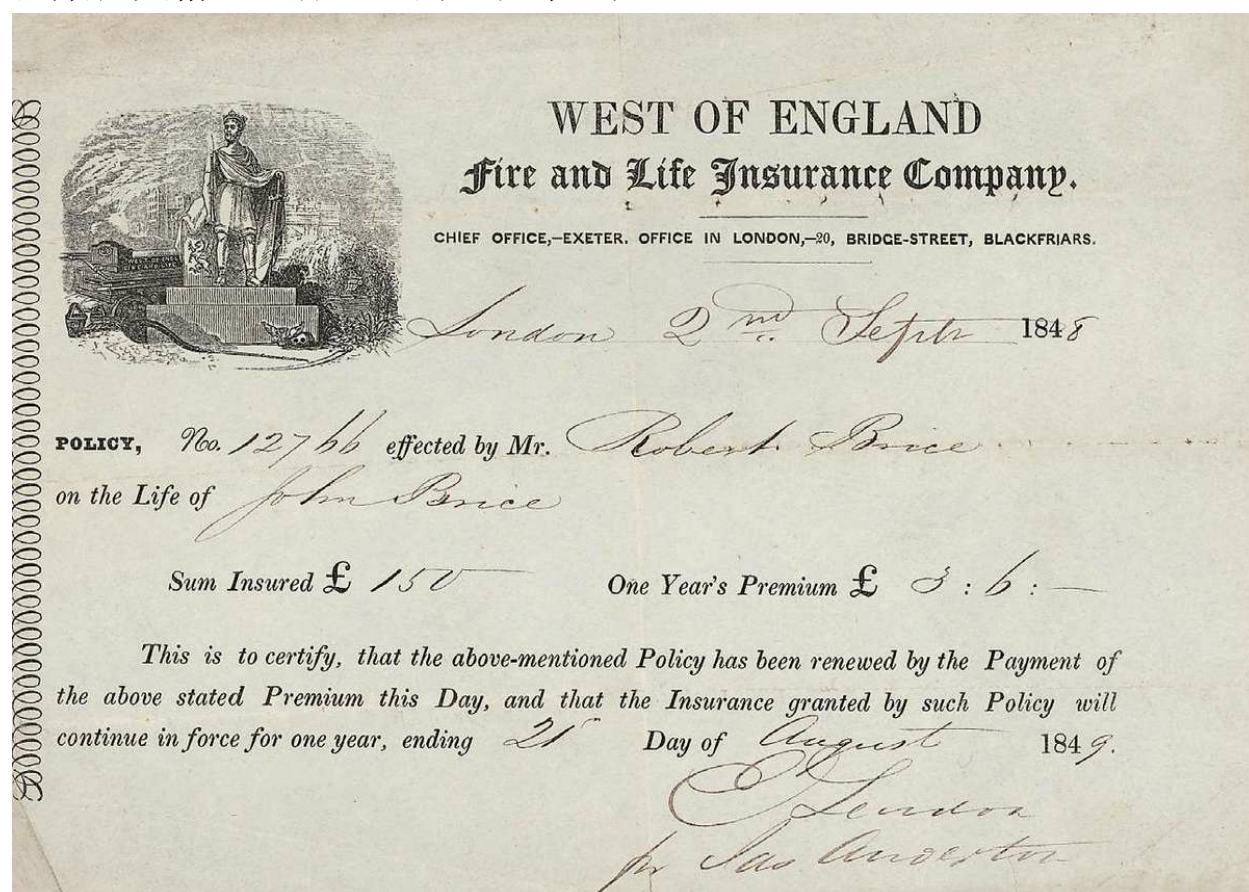 WEST OF ENGLAND
Fire and Life Insurance Company.
CHIEF OFFICE,—EXETER. OFFICE IN LONDON,—20, BRIDGE-STREET, BLACKFRIARS.
London 2nd Septr 1848
POLICY, No. 12766 effected by Mr. Robert Brice
on the Life of John Brice
Sum Insured £ 150 One Year's Premium £ 3 : 6 : —
This is to certify, that the above-mentioned Policy has been renewed by the Payment of
the above stated Premium this Day, and that the Insurance granted by such Policy will
continue in force for one year, ending Day of August 1849.
pr Jas Anderton